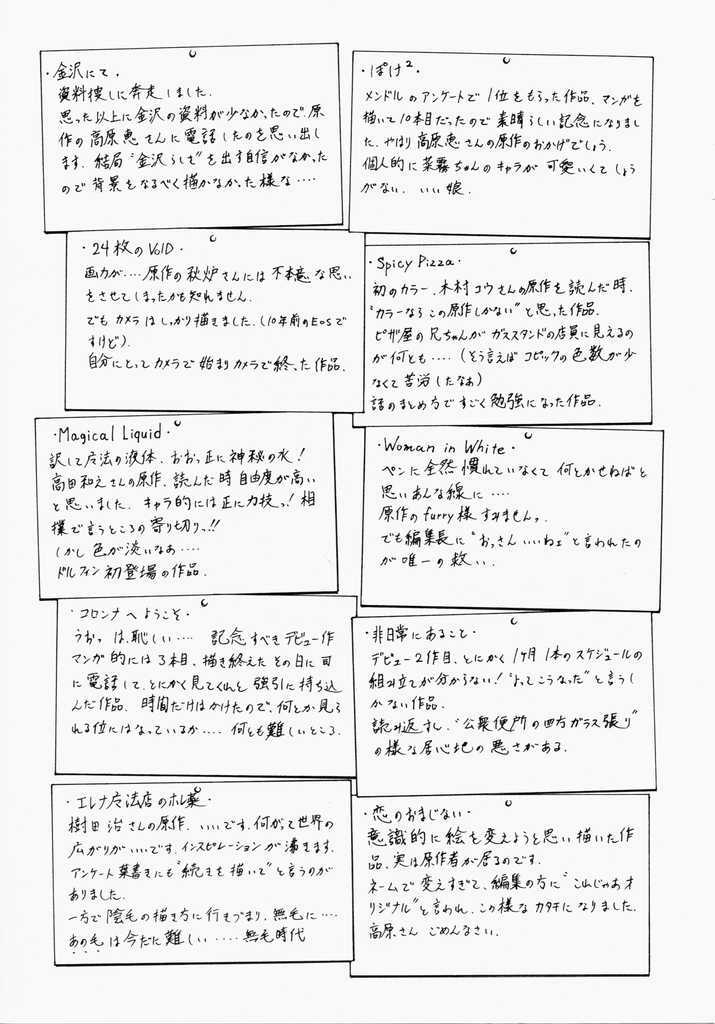 ・金沢にて・
資料捜しに奔走しました.
思った以上に金沢の資料が少なかったので、原
作の高原恵さんに電話したのを思い出し
ます. 結局“金沢らしさ”を出す自信がなかった
ので背景をなるべく描かなかった様な‥‥
・ぽけ²・
メンドルのアンケートで1位をもらった作品、マンガを
描いて10本目だったので素晴らしい記念になりまし
た. やはり高原恵さんの原作のおかげでしょう.
個人的に菜霧ちゃんのキャラが可愛いくてしょう
がない. いい娘.
・24枚のVOID・
画力が‥‥原作の秋炉さんには不本意な思い
をさせてしまったかも知れません.
でもカメラはしっかり描きました. (10年前のEOSで
すけど).
自分にとってカメラで始まりカメラで終った作品.
・Spicy Pizza・
初のカラー、木村コウさんの原作を読んだ時、
“カラーならこの原作しかない”と思った作品.
ピザ屋の兄ちゃんがガススタンドの店員に見えるの
が何とも‥‥(そう言えばコピックの色数が少
なくて苦労したなぁ)
話のまとめ方ですごく勉強になった作品.
・Magical Liquid・
訳して魔法の液体. おおっ正に神秘の水!
高田和えさんの原作. 読んだ時自由度が高い
と思いました. キャラ的には正に力技っ! 相
撲で言うところの寄り切りっ!!
しかし色が淡いなぁ‥‥
ドルフィン初登場の作品.
・Woman in White・
ペンに全然慣れていなくて何とかせねばと
思いあんな線に‥‥
原作のfurry様すみませんっ.
でも編集長に“おっさんいいねェ”と言われたの
が唯一の救い.
・コロンナへようこそ・
うおっ は、恥しい‥‥ 記念すべきデビュー作
マンガ的には3本目、描き終えたその日に司
に電話して、とにかく見てくれと強引に持ち込
んだ作品. 時間だけはかけたので、何とか見ら
れる位にはなっているか‥‥何とも難しいところ.
・非日常にあること・
デビュー2作目. とにかく1ヶ月1本のスケジュールの
組み立てが分からない! “よってこうなった”と言うし
かない作品.
読み返すし、“公衆便所の四方ガラス張り”
の様な居心地の悪さがある.
・エレナ魔法店のホレ薬・
樹田治さんの原作. いいです. 何がって世界の
広がりがいいです. インスピレーションが湧きます.
アンケート葉書きにも“続きを描いて”と言うのが
ありました.
一方で陰毛の描き方に行きづまり. 無毛に‥‥
あの毛は今だに難しい‥‥‥無毛時代
・恋のおまじない・
意識的に絵を変えようと思い描いた作
品. 実は原作者が居るのです.
ネームで変えすぎて、編集の方に“これじゃあオ
リジナル”と言われ、この様なカタチになりました.
高原さん ごめんなさい.